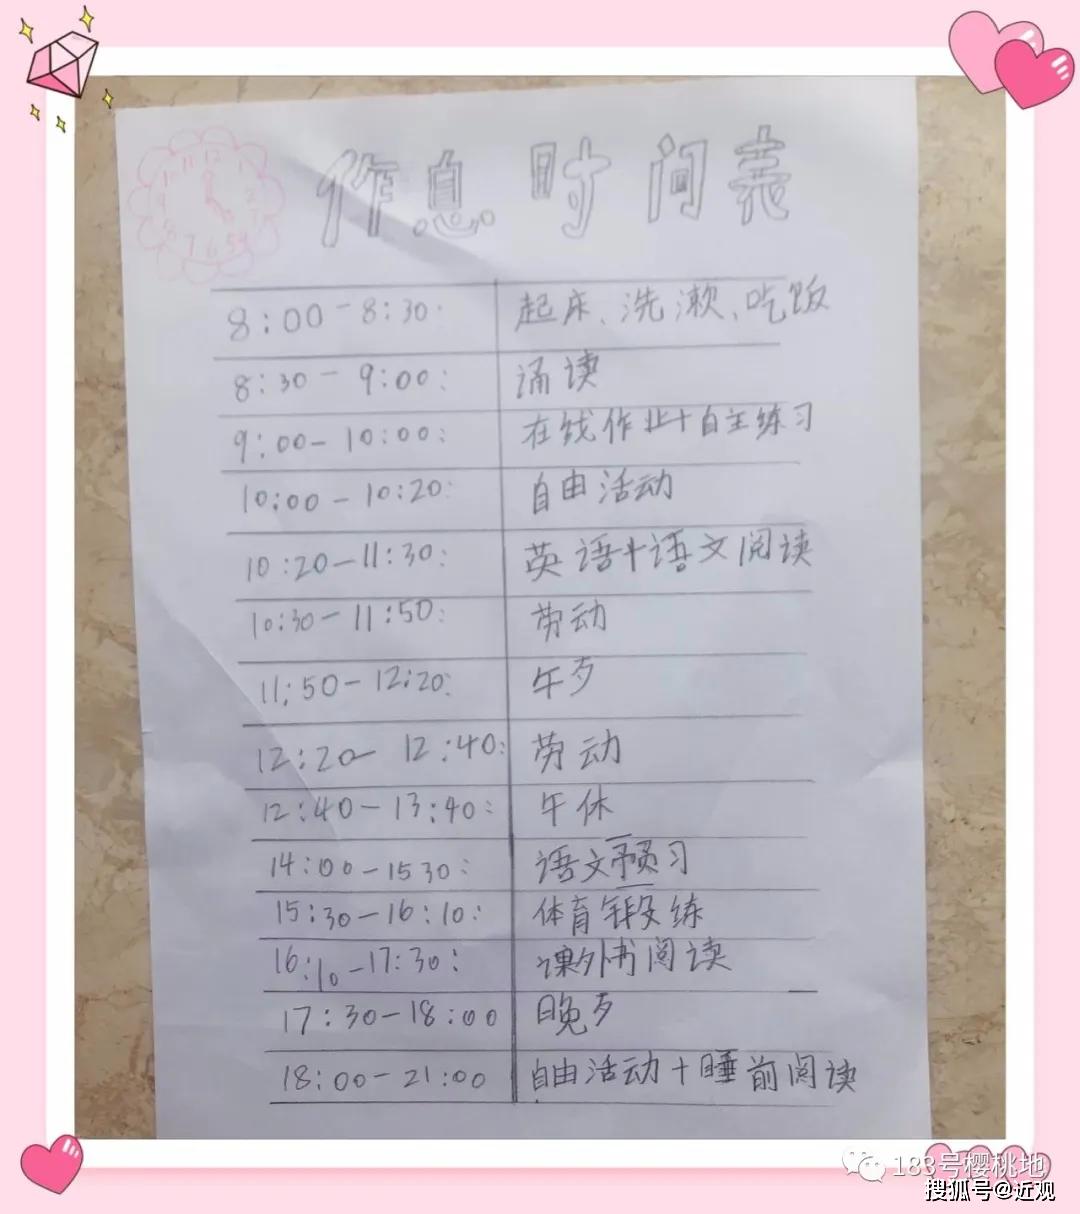 12 1 2 3 4 5 6 7 8 9 10 11
作息时间表
8:00-8:30: 起床、洗漱、吃饭
8:30-9:00: 诵读
9:00-10:00: 在线作业+自主练习
10:00-10:20: 自由活动
10:20-11:30: 英语+语文阅读
10:30-11:50: 劳动
11:50-12:20: 午歺
12:20-12:40: 劳动
12:40-13:40: 午休
14:00-1530: 语文预习
15:30-16:10: 体育锻练
16:10-17:30: 课外书阅读
17:30-18:00 晚歺
18:00-21:00 自由活动+睡前阅读
183号樱桃地
搜狐号@近观